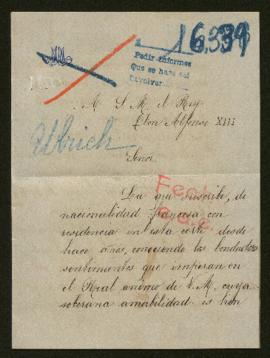 16.339
Pedir informes
Que se haga así
Devolver
A S. M. el Rey
Don Alfonso XIII
Ulrich
Señor
La que suscribe, de
nacionalidad francesa con
residencia en esta corte desde
hace años, conociendo los bondadosos
sentimientos que imperan en
el Real ánimo de V. M., cuya
soberana amabilidad es